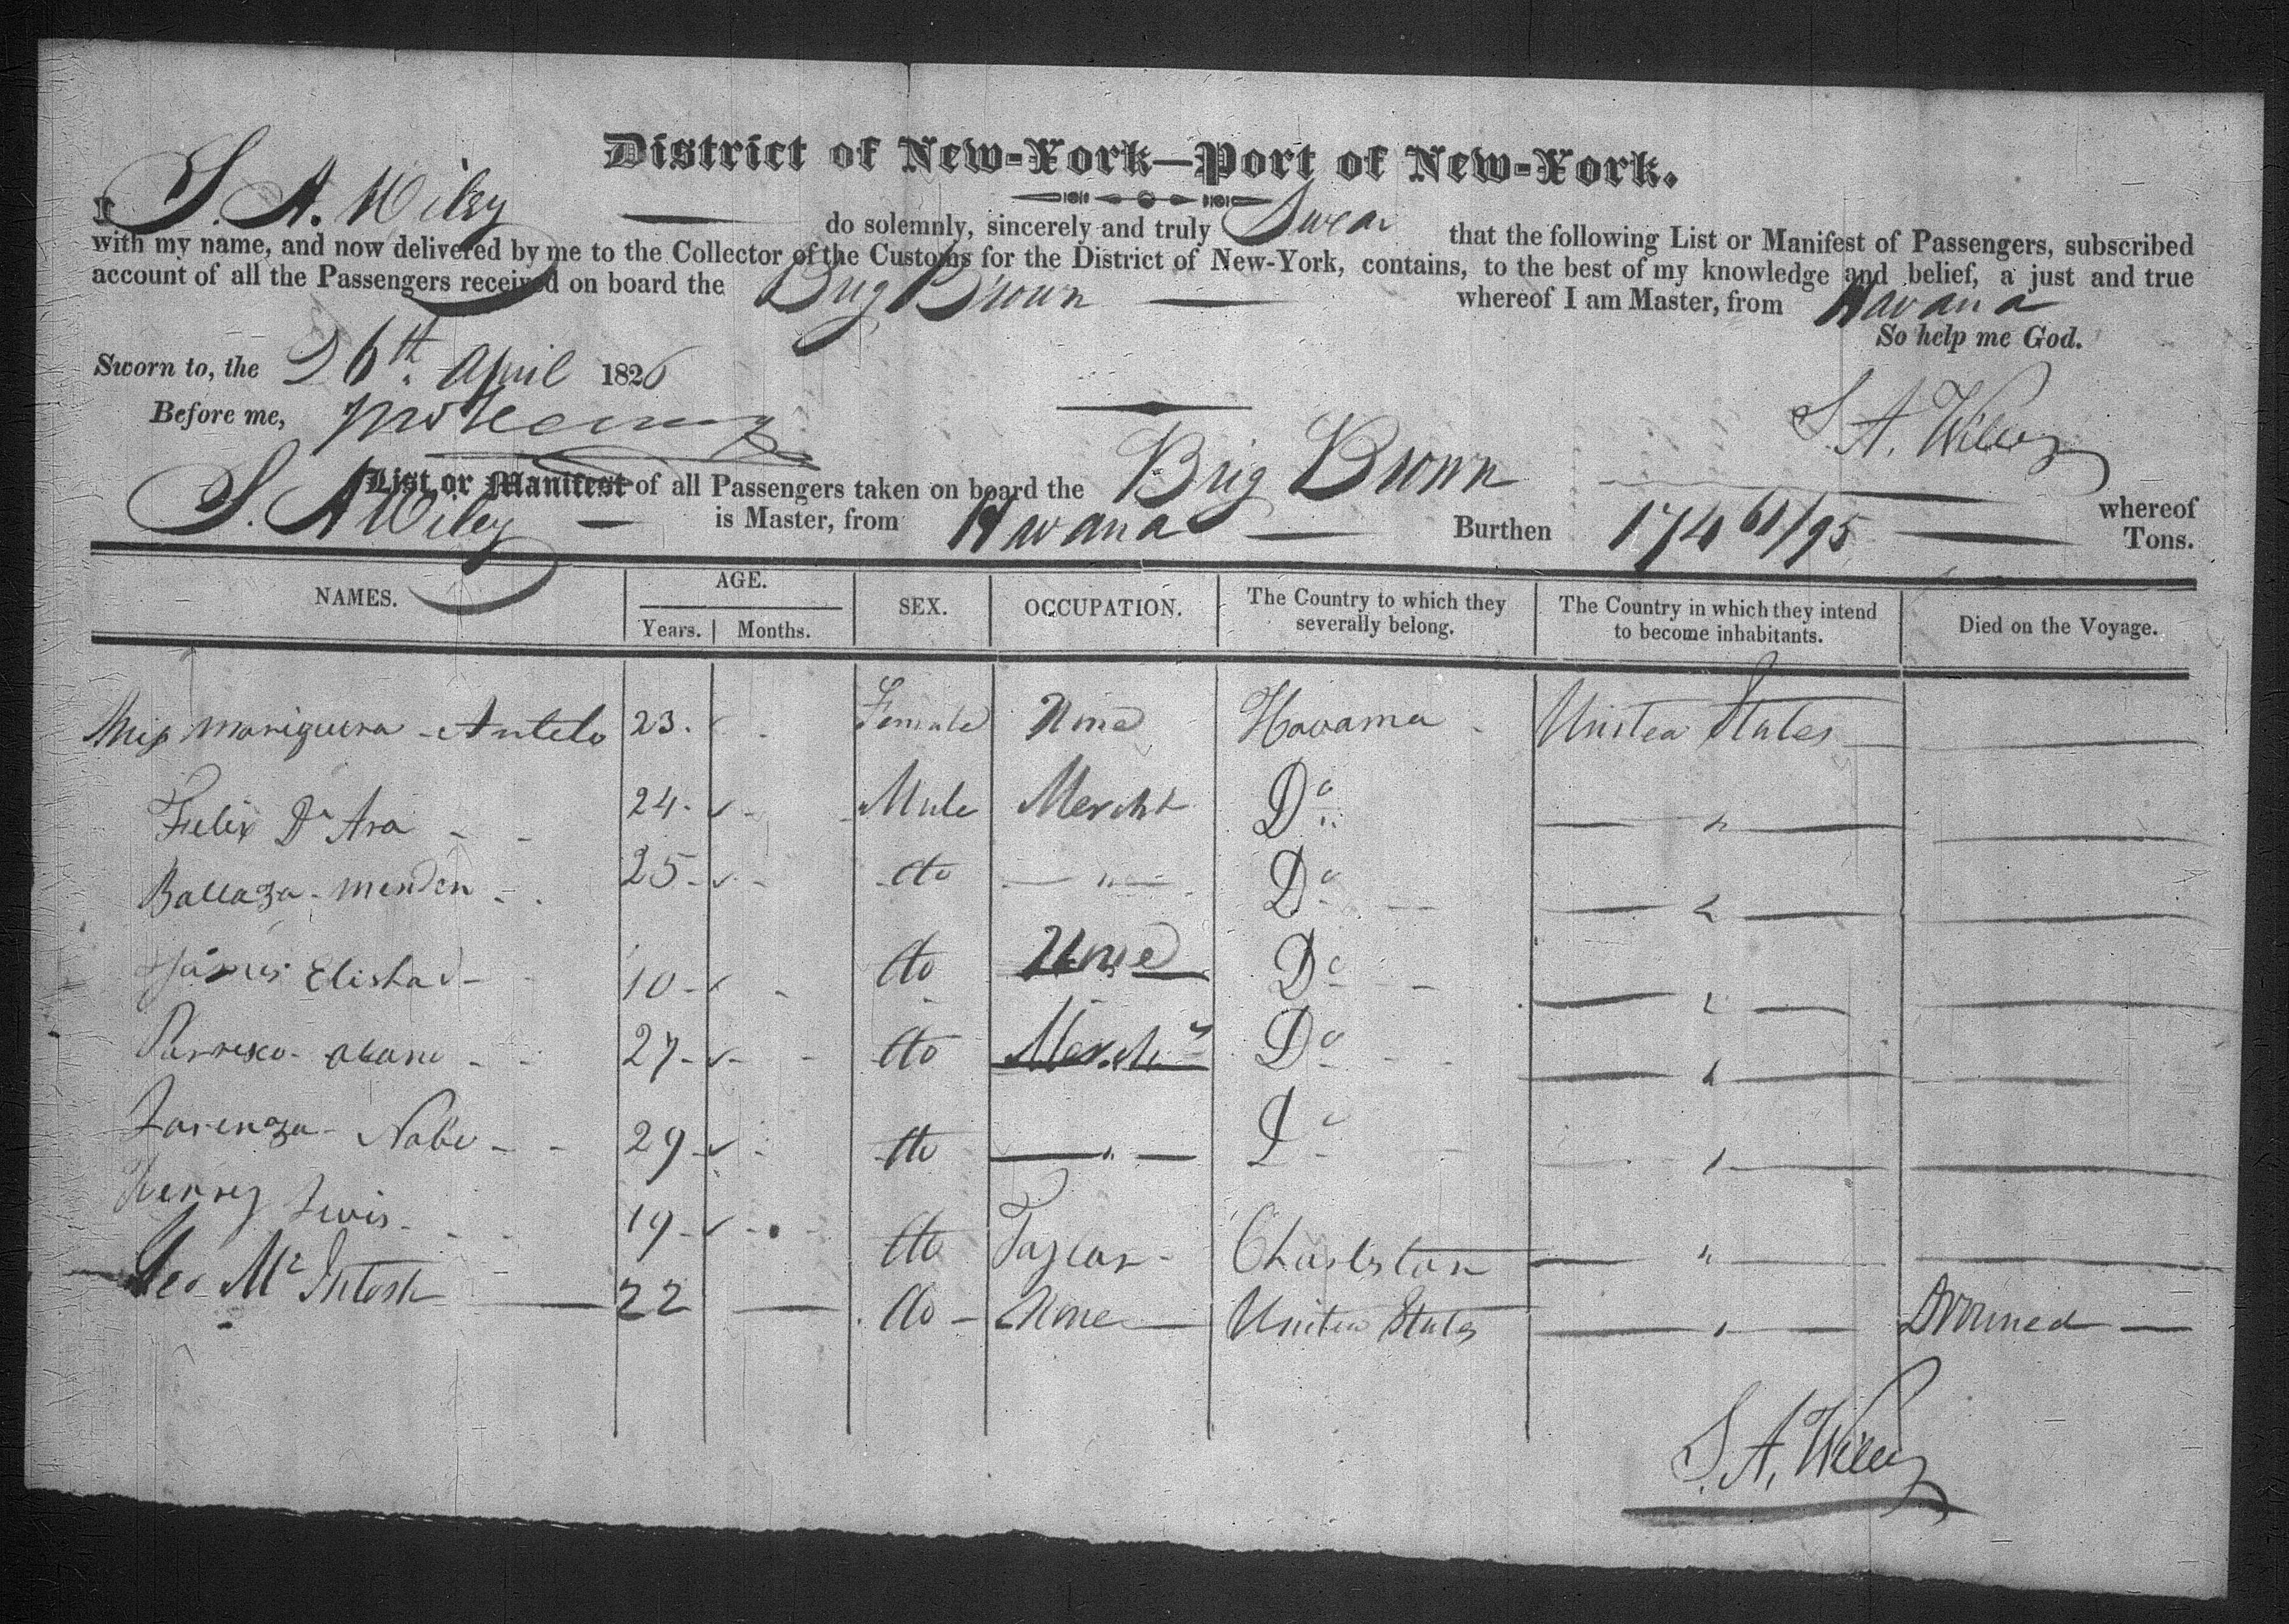 District of New-York—Port of New-York.
I S. A. Wiley — do solemnly, sincerely and truly Swear that the following List or Manifest of Passengers, subscribed
with my name, and now delivered by me to the Collector of the Customs for the District of New-York, contains, to the best of my knowledge and belief, a just and true
account of all the Passengers received on board the Brig Brown — whereof I am Master, from Havana
So help me God.
Sworn to, the 26th. April 1826
Before me,
S. A. Wiley
List or Manifest of all Passengers taken on board the Brig Brown — whereof
S. A Wiley — is Master, from Havana — Burthen 174 61/95 — Tons.
NAMES. AGE. SEX. OCCUPATION. The Country to which they severally belong. The Country in which they intend to become inhabitants. Died on the Voyage.
Years. Months.
Miss Mariquera - Antelo 23. Female None Havana - United States —
Felix Dn Ara - - 24 - Male Mercht Do — " — —
Ballaza - Menden - - 25 - do — " — Do — " — —
James Elishad - 10 - do None Do — " — —
27 - do Mercht Do — " — —
Larenza - Nabe - - 29 - do — " — Do — " — —
Henrey Lewis - - 19 - do Taylor - Charlston — " — —
Geo Mc Intosh — 22 — do - None — United States — " — Drowned —
S. A. Wiley